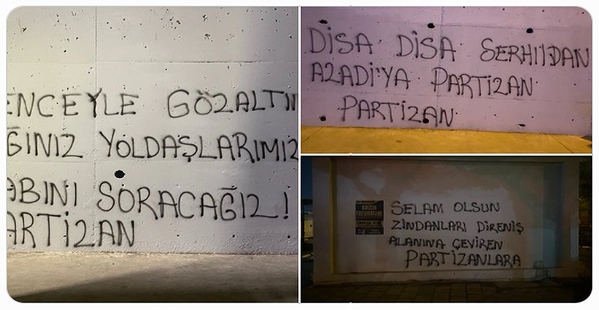 ENCEYLE GÖZALTI
ĞINIZ YOLDAŞLARIMIZ
ABINI SORACAĞIZ!
ARTİZAN
DISA DISA SERHILDAN
AZADİYA PARTİZAN
PARTİZAN
SELAM OLSUN
ZİNDANLARI DİRENİŞ
ALANINA ÇEVİREN
PARTİZANLARA